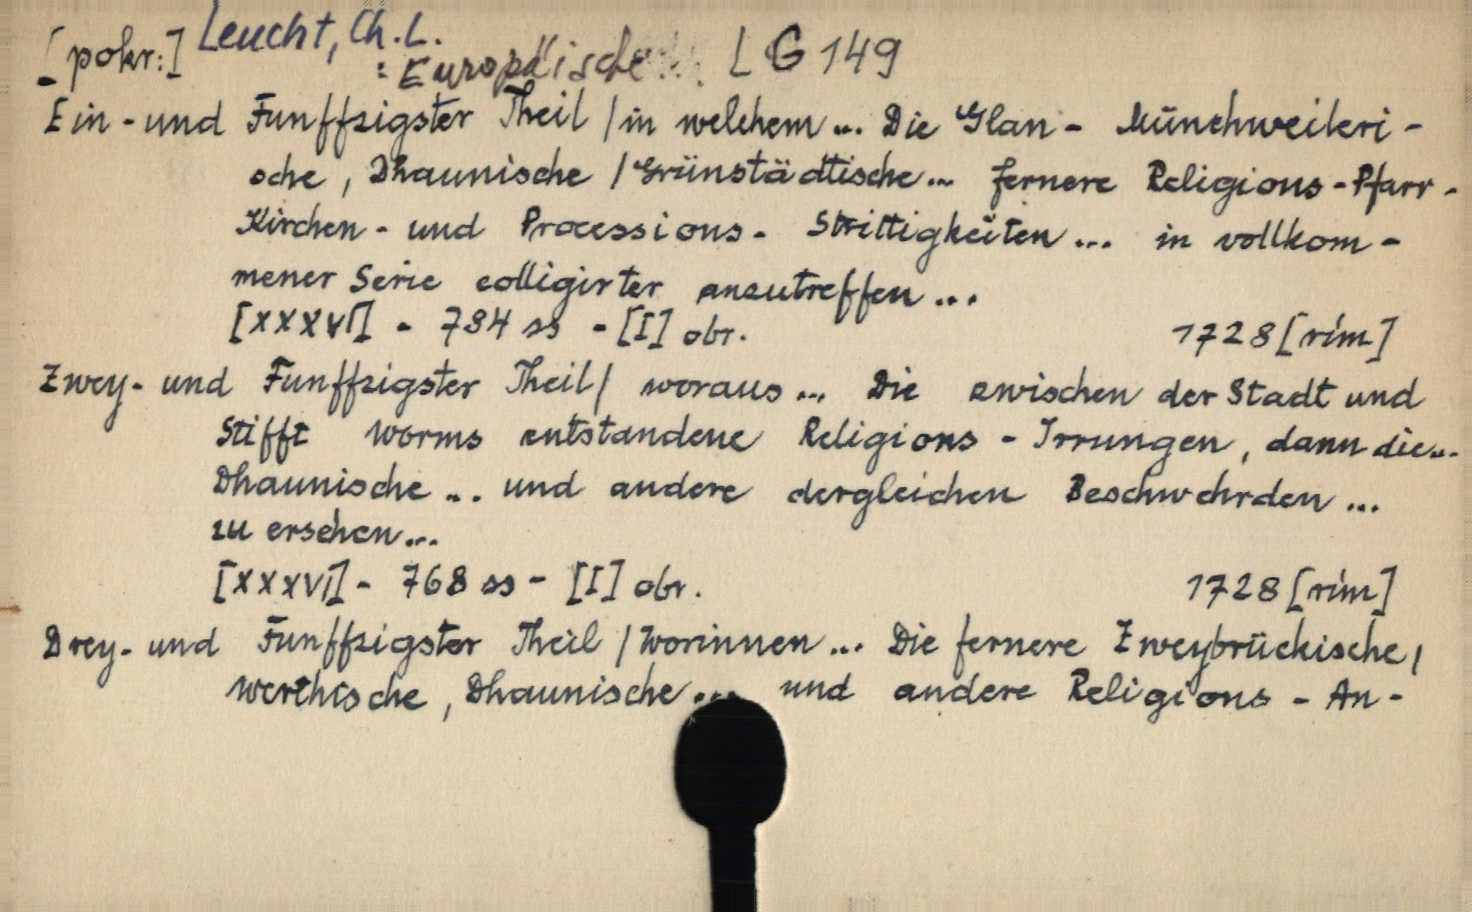 [pokr:] Leucht, Ch. L.
: Europäische... LG 149
Ein- und Funffzigster Theil / in welchem... Die Glan- Münchweileri-
sche, Dhaunische / Grünstädtische... fernere Religions-Pfarr-
Kirchen- und Processions- Strittigkeiten... in vollkom-
mener Serie colligirter anzutreffen...
[XXXVI] - 784 ss - [I] obr. 1728 [rím]
Zwey- und Funffzigster Theil / woraus... Die zwischen der Stadt und
Stifft Worms entstandene Religions - Irrungen, dann die...
Dhaunische... und andere dergleichen Beschwehrden...
zu ersehen...
[XXXVI] - 768 ss - [I] obr. 1728 [rím]
Drey- und Funffzigster Theil / Worinnen... Die fernere Zweybrückische,
Werthische, Dhaunische... und andere Religions - An-